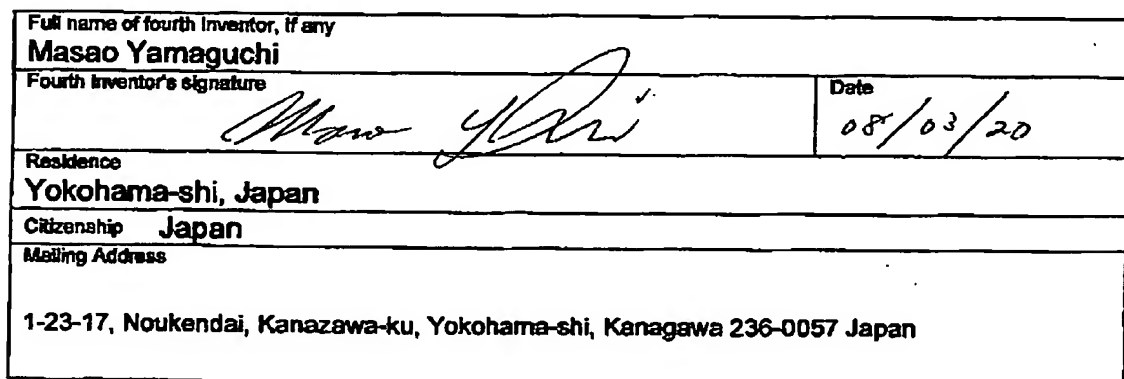 Full name of fourth inventor, if any
Masao Yamaguchi
Fourth inventor's signature
Date
Masao
08/03/20
Residence
Yokohama-shi, Japan
Citizenship Japan
Mailing Address
1-23-17, Noukendai, Kanazawa-ku, Yokohama-shi, Kanagawa 236-0057 Japan